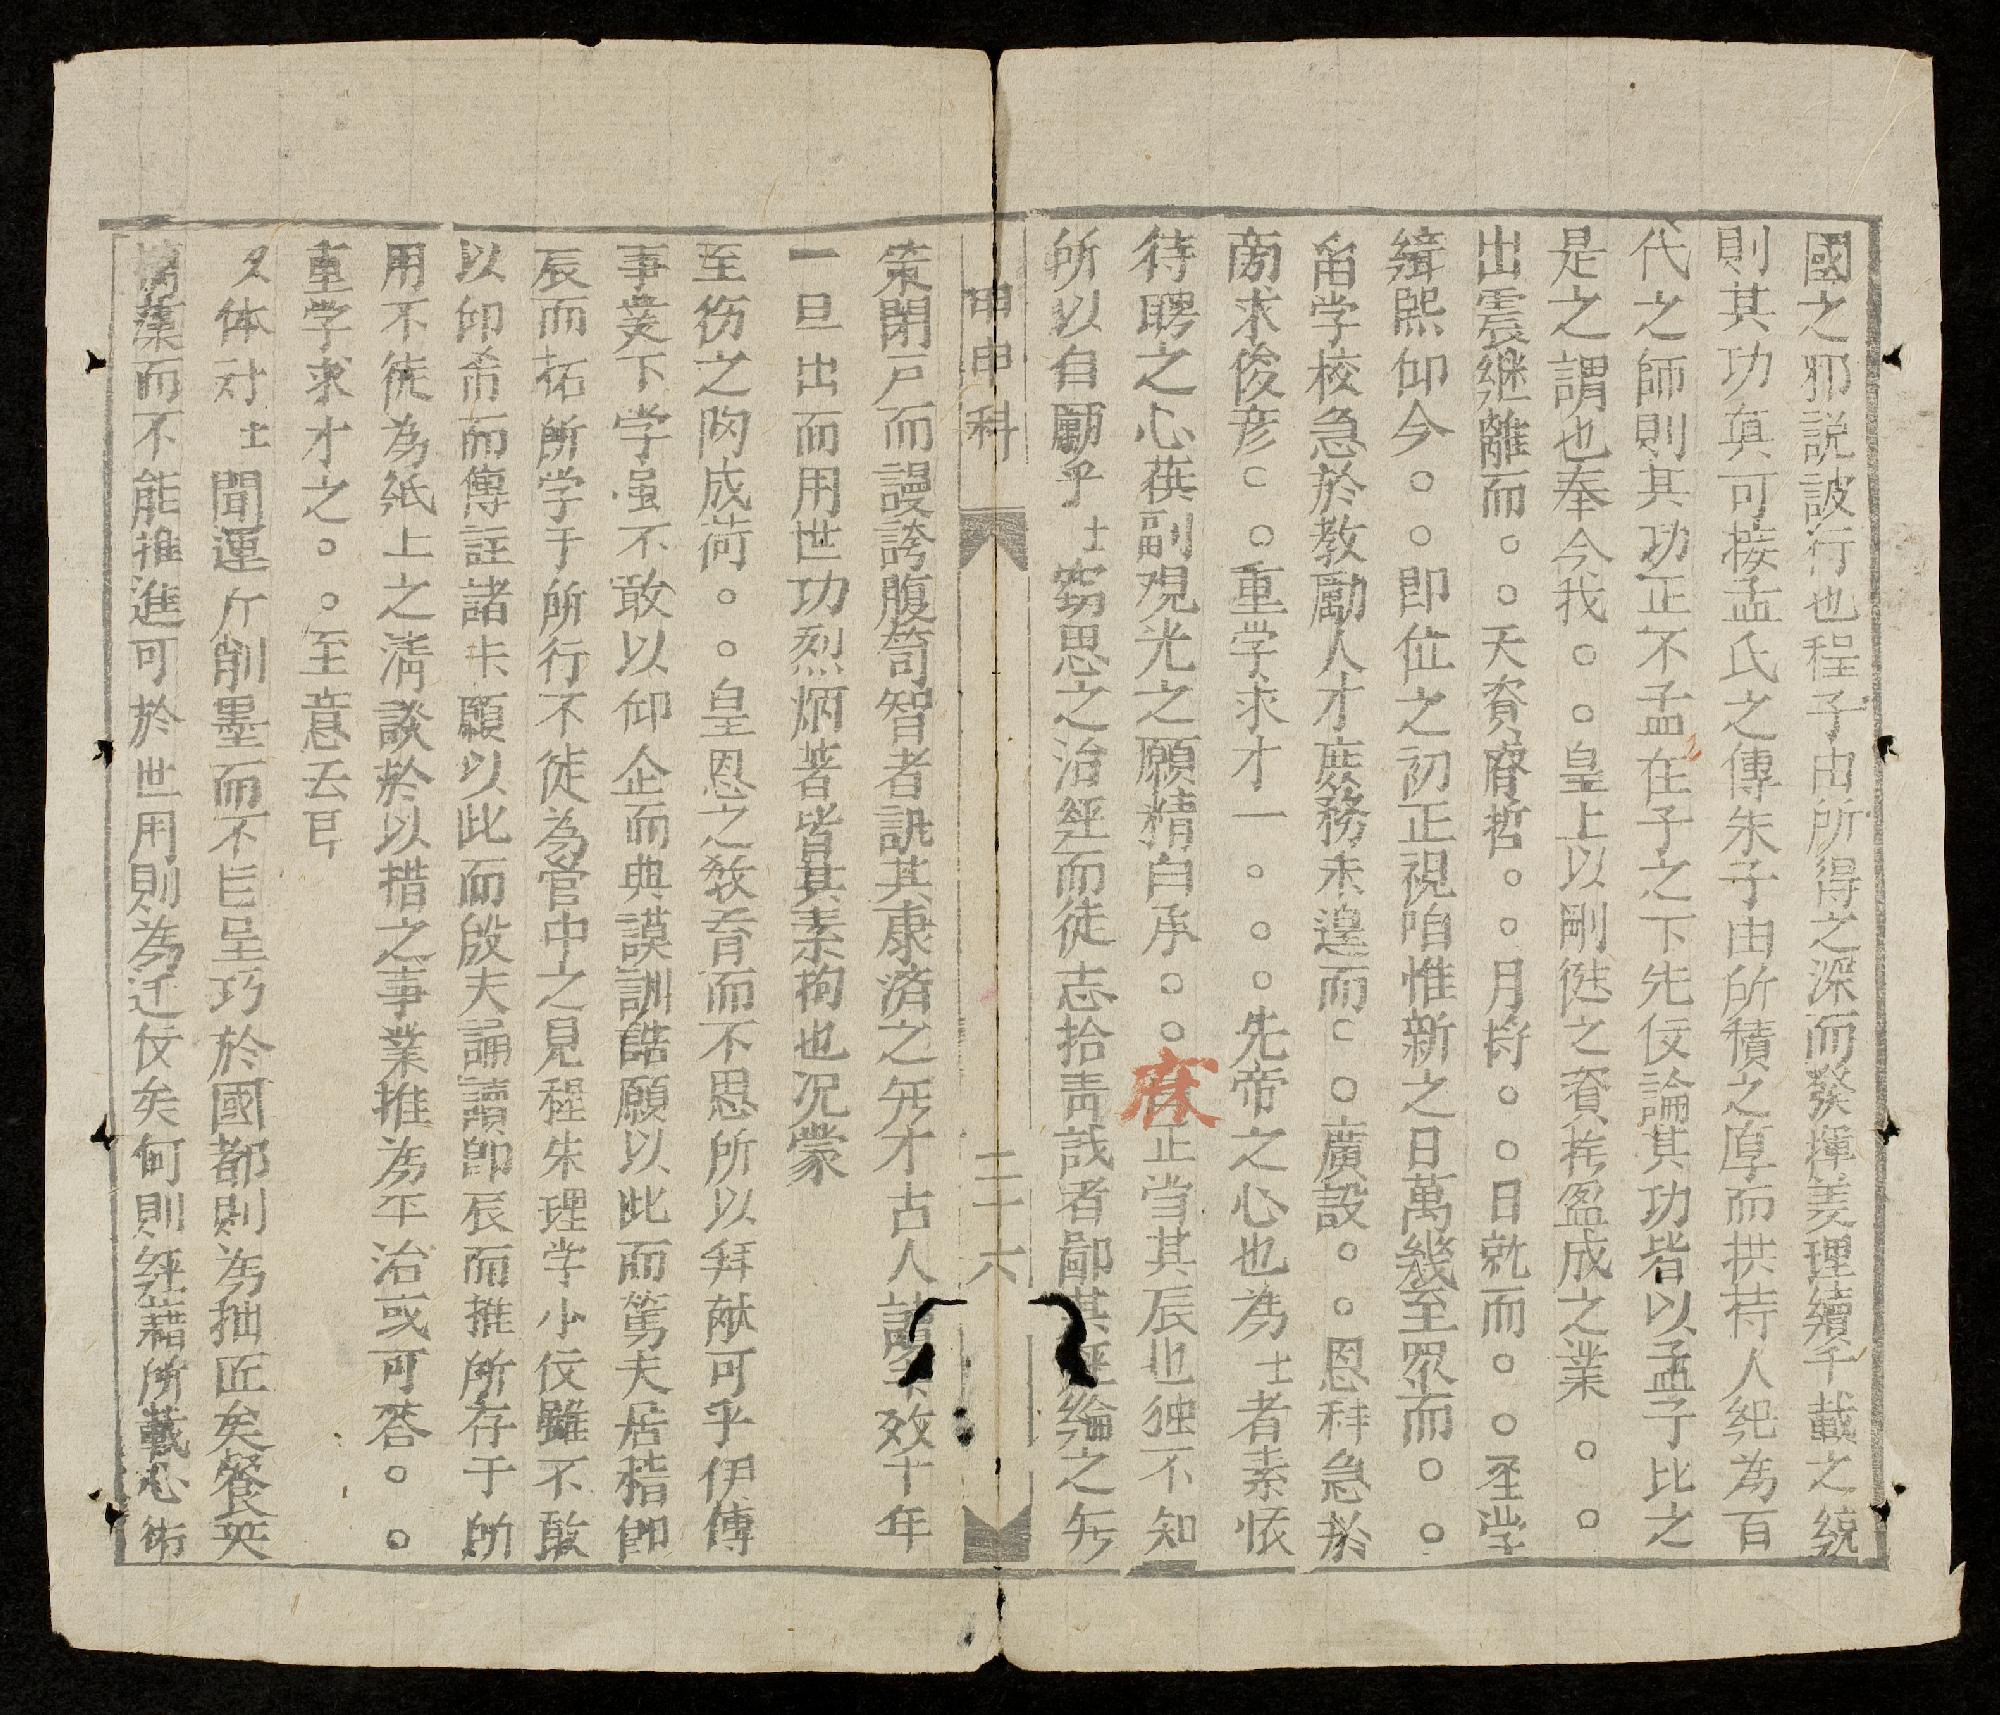 國之邪説詖行也程子由所得之深而發揮美理續千載之統
則其功眞可接孟氏之傳朱子由所積之厚而拱持人紀為百
代之師則其功正不孟在子之下先伎論其功皆以孟子比之
是之謂也奉今我○○皇上以剛徤之資持盈成之業○○
出震継離而○○天資睿哲○○月將○○日就而○○聖学
緝熙仰今○○即位之初正視咱惟新之日萬幾至眾而○○
畄学校急於教勵人才庶務未遑而○○廣設○○恩科急於
旁求俊彦○○重学求才一○○○先帝之心也為士者素懷
待聘之心葉副覌光之願精白承○○庥正当其辰也独不知
所以自勵乎士窃思之治經而徒志拾青武者鄙其經綸之无
甲申科 三十六
策閉戸而謾誇腹笥智者訛其康済之無才古人讀 效千年
一旦出而用世功烈炳著皆其素抱也况蒙
至彷之陶成荷○○皇恩之敎育而不思所以拜献可乎伊傳
事業下学虽不敢以仰企而典謨訓誥願以此而篤夫居稽即
辰而拓所学于所行不徒為管中之見程朱理学小伎雖不敢
以仰希而傳註諸卡願以此而殷夫誦讀即辰而推所存于所
用不徒為紙上之清談於以措之事業推為平治或可答○○
重学求才之○○至意云耳
文体对士聞運斤削墨而不巨呈巧於國都則為拙匠矣餐英
摘藻而不能推進可於世用則為迂伎矣何則經藉所載心術